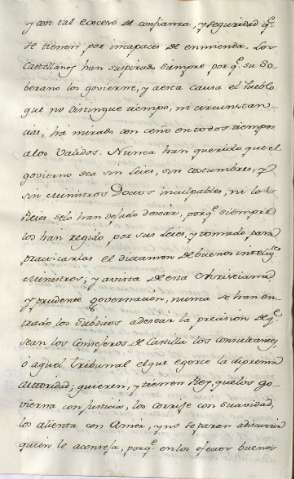 y con tal exceso de confianza, y seguridad q.e
se tienen por incapaces de enmienda. Los
Castellanos han suspirado siempre por q.e su So-
berano los govierne, y a esta causa el Pueblo
que no distingue tiempo, ni circunstan-
cias, ha mirado con ceño en todos tiempos
a los Validos. Nunca han querido que el
govierno sea sin Leies, sin costumbres, y
sin Ministros Doctos inculpables, ni los
Reies se lo han dejado desear, porq.e siempre
los han regido por sus Leies, y tomado para
practicarlas el dictamen de buenos
Ministros, y a vista de esta Christiana,
y prudente governacion, nunca se han en-
trado los subditos a desear la precision de q.e
sean los Consejeros de Castilla los consultados,
ò aquel tribunal el que egerce la suprema
autoridad; quieren, y tienen Rey, que los go-
vierna con justicia, los corrije con suavidad,
los alienta con Amor, y no separan a discurrir
quien le aconseja, porq.e en los